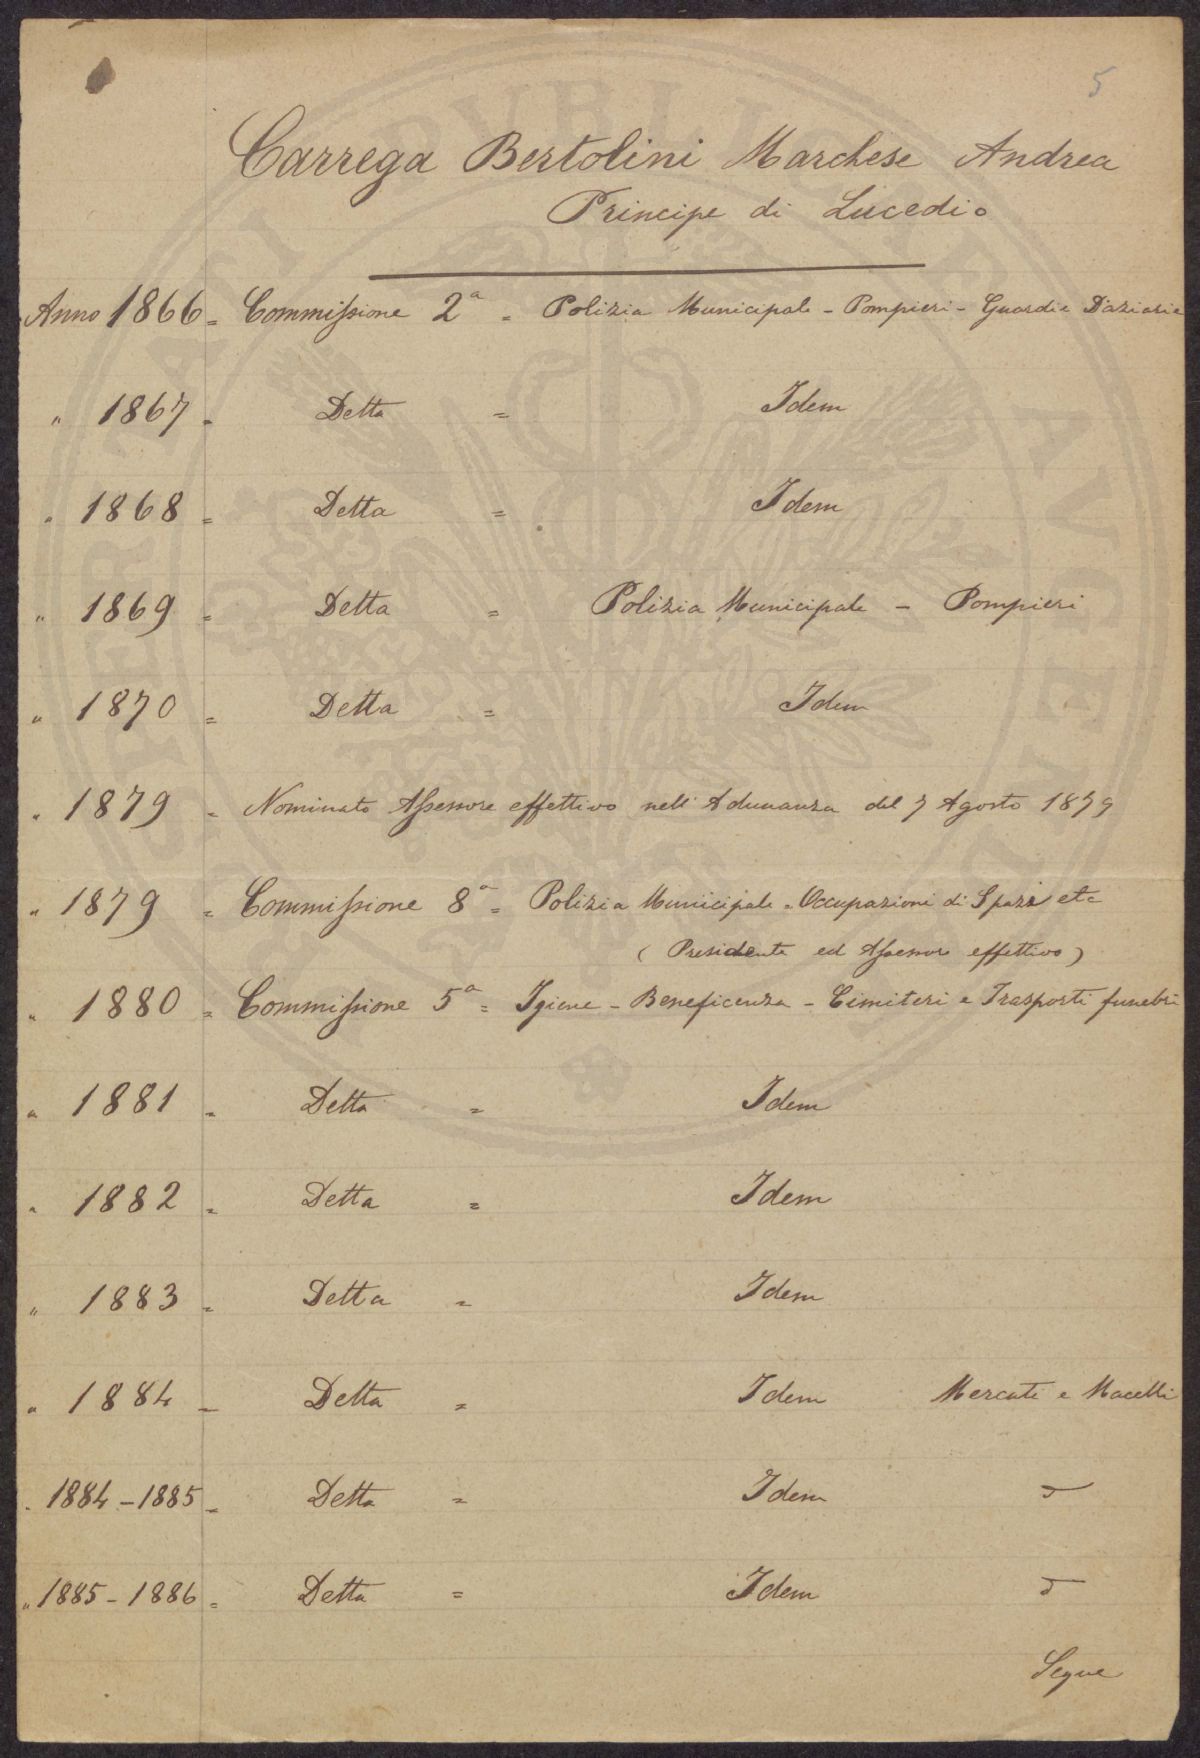 5
Carrega Bertolini Marchese Andrea
Principe di Lucedio
Anno 1866 = Commissione 2ª = Polizia Municipale - Pompieri - Guardie Daziarie
" 1867 = Detta = Idem
" 1868 = Detta = Idem
" 1869 = Detta = Polizia Municipale - Pompieri
" 1870 = Detta = Idem
" 1879 = Nominato Assessore effettivo nell'Adunanza del 7 Agosto 1879
" 1879 = Commissione 8ª = Polizia Municipale = Occupazioni di Spazi etc
( Presidente ed Assessore effettivo )
" 1880 = Commissione 5ª = Igiene - Beneficenza - Cimiteri e Trasporti funebri
" 1881 = Detta = Idem
" 1882 = Detta = Idem
" 1883 = Detta = Idem
" 1884 = Detta = Idem Mercati e Macelli
" 1884 - 1885 = Detta = Idem
" 1885 - 1886 = Detta = Idem
Segue